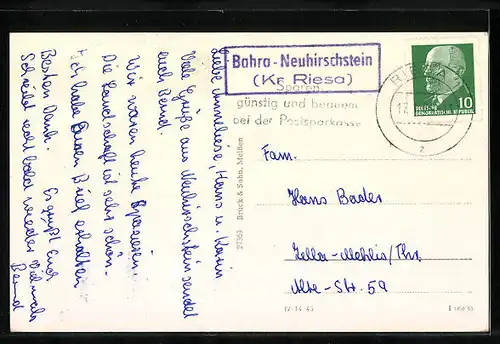 Liebe Annliese, Hans u. Karin
Viele Grüße aus Neuhirschstein sendet
euch Bernd.
Wir waren heute spazieren.
Die Landschaft ist sehr schön.
Ich habe Euren Brief erhalten
Besten Dank. Es grüßt Euch
Schreibt recht bald wieder
Bernd
27363 Brück & Sohn, Meißen
Bahra-Neuhirschstein
(Kr. Riesa)
Sparen
günstig und bequem
bei der Postsparkasse
RIESA
17.
z
DEUTSCHE
DEMOKRATISCHE REPUBLIK
10
Fam.
Hans Bader
Zella-Mehlis/Thr.
Alte-Str. 59
IV-14-45